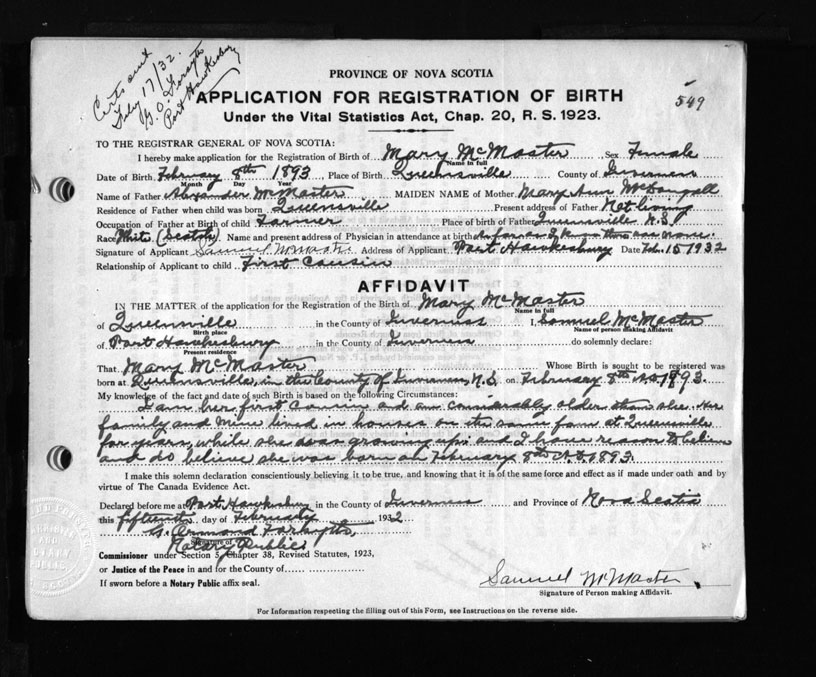 Certs sent
Feby 17/32.
G. O. Forsyth
Port Hawkesbury
549
PROVINCE OF NOVA SCOTIA
APPLICATION FOR REGISTRATION OF BIRTH
Under the Vital Statistics Act, Chap. 20, R. S. 1923.
TO THE REGISTRAR GENERAL OF NOVA SCOTIA:
I hereby make application for the Registration of Birth of Mary McMaster Sex Female
Name in full
Date of Birth February 8th 1893 Place of Birth Queensville County of Inverness
Month Day Year
Name of Father Alexander McMaster MAIDEN NAME of Mother Mary Ann McDougall
Residence of Father when child was born Queensville Present address of Father Not living
Occupation of Father at Birth of child Farmer Place of birth of Father Queensville N.S.
Race White (Scotch) Name and present address of Physician in attendance at birth As far as I know there was none.
Signature of Applicant Samuel McMaster Address of Applicant Port Hawkesbury Date Feb. 15 1932
Relationship of Applicant to child First Cousin
AFFIDAVIT
IN THE MATTER of the application for the Registration of the Birth of Mary McMaster
Name in full
of Queensville in the County of Inverness I, Samuel McMaster
Birth place Name of person making Affidavit
of Port Hawkesbury in the County of Inverness do solemnly declare:
Present residence
That Mary McMaster Whose Birth is sought to be registered was
born at Queensville, in the County of Inverness, N.S. on February 8th A.D. 1893.
My knowledge of the fact and date of such Birth is based on the following Circumstances:
I am her first cousin and am considerably older than she. Her
family and mine lived in houses on the same farm at Queensville
for years, while she was growing up: and I have reason to believe
and do believe she was born on February 8th A.D. 1893.
I make this solemn declaration conscientiously believing it to be true, and knowing that it is of the same force and effect as if made under oath and by
virtue of The Canada Evidence Act.
Declared before me at Port Hawkesbury in the County of Inverness and Province of Nova Scotia
this fifteenth day of February 1932
G. Ormond Forsyth,
Notary Public
Commissioner under Section 5, Chapter 38, Revised Statutes, 1923,
or Justice of the Peace in and for the County of
If sworn before a Notary Public affix seal.
Samuel McMaster
Signature of Person making Affidavit.
For Information respecting the filling out of this Form, see Instructions on the reverse side.